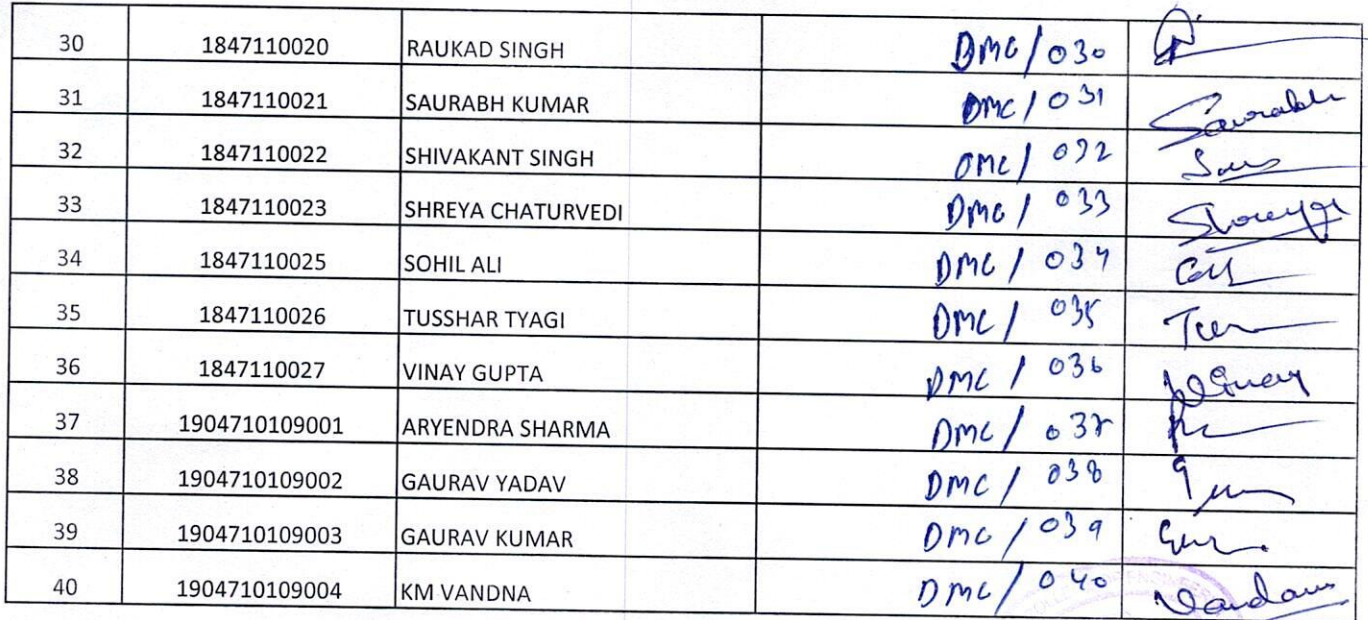 30 1847110020 RAUKAD SINGH DMC/030
31 1847110021 SAURABH KUMAR DMC/031 Saurabh
32 1847110022 SHIVAKANT SINGH DMC/032
33 1847110023 SHREYA CHATURVEDI DMC/033 Shreya
34 1847110025 SOHIL ALI DMC/034
35 1847110026 TUSSHAR TYAGI DMC/035
36 1847110027 VINAY GUPTA DMC/036
37 1904710109001 ARYENDRA SHARMA DMC/037
38 1904710109002 GAURAV YADAV DMC/038
39 1904710109003 GAURAV KUMAR DMC/039
40 1904710109004 KM VANDNA DMC/040